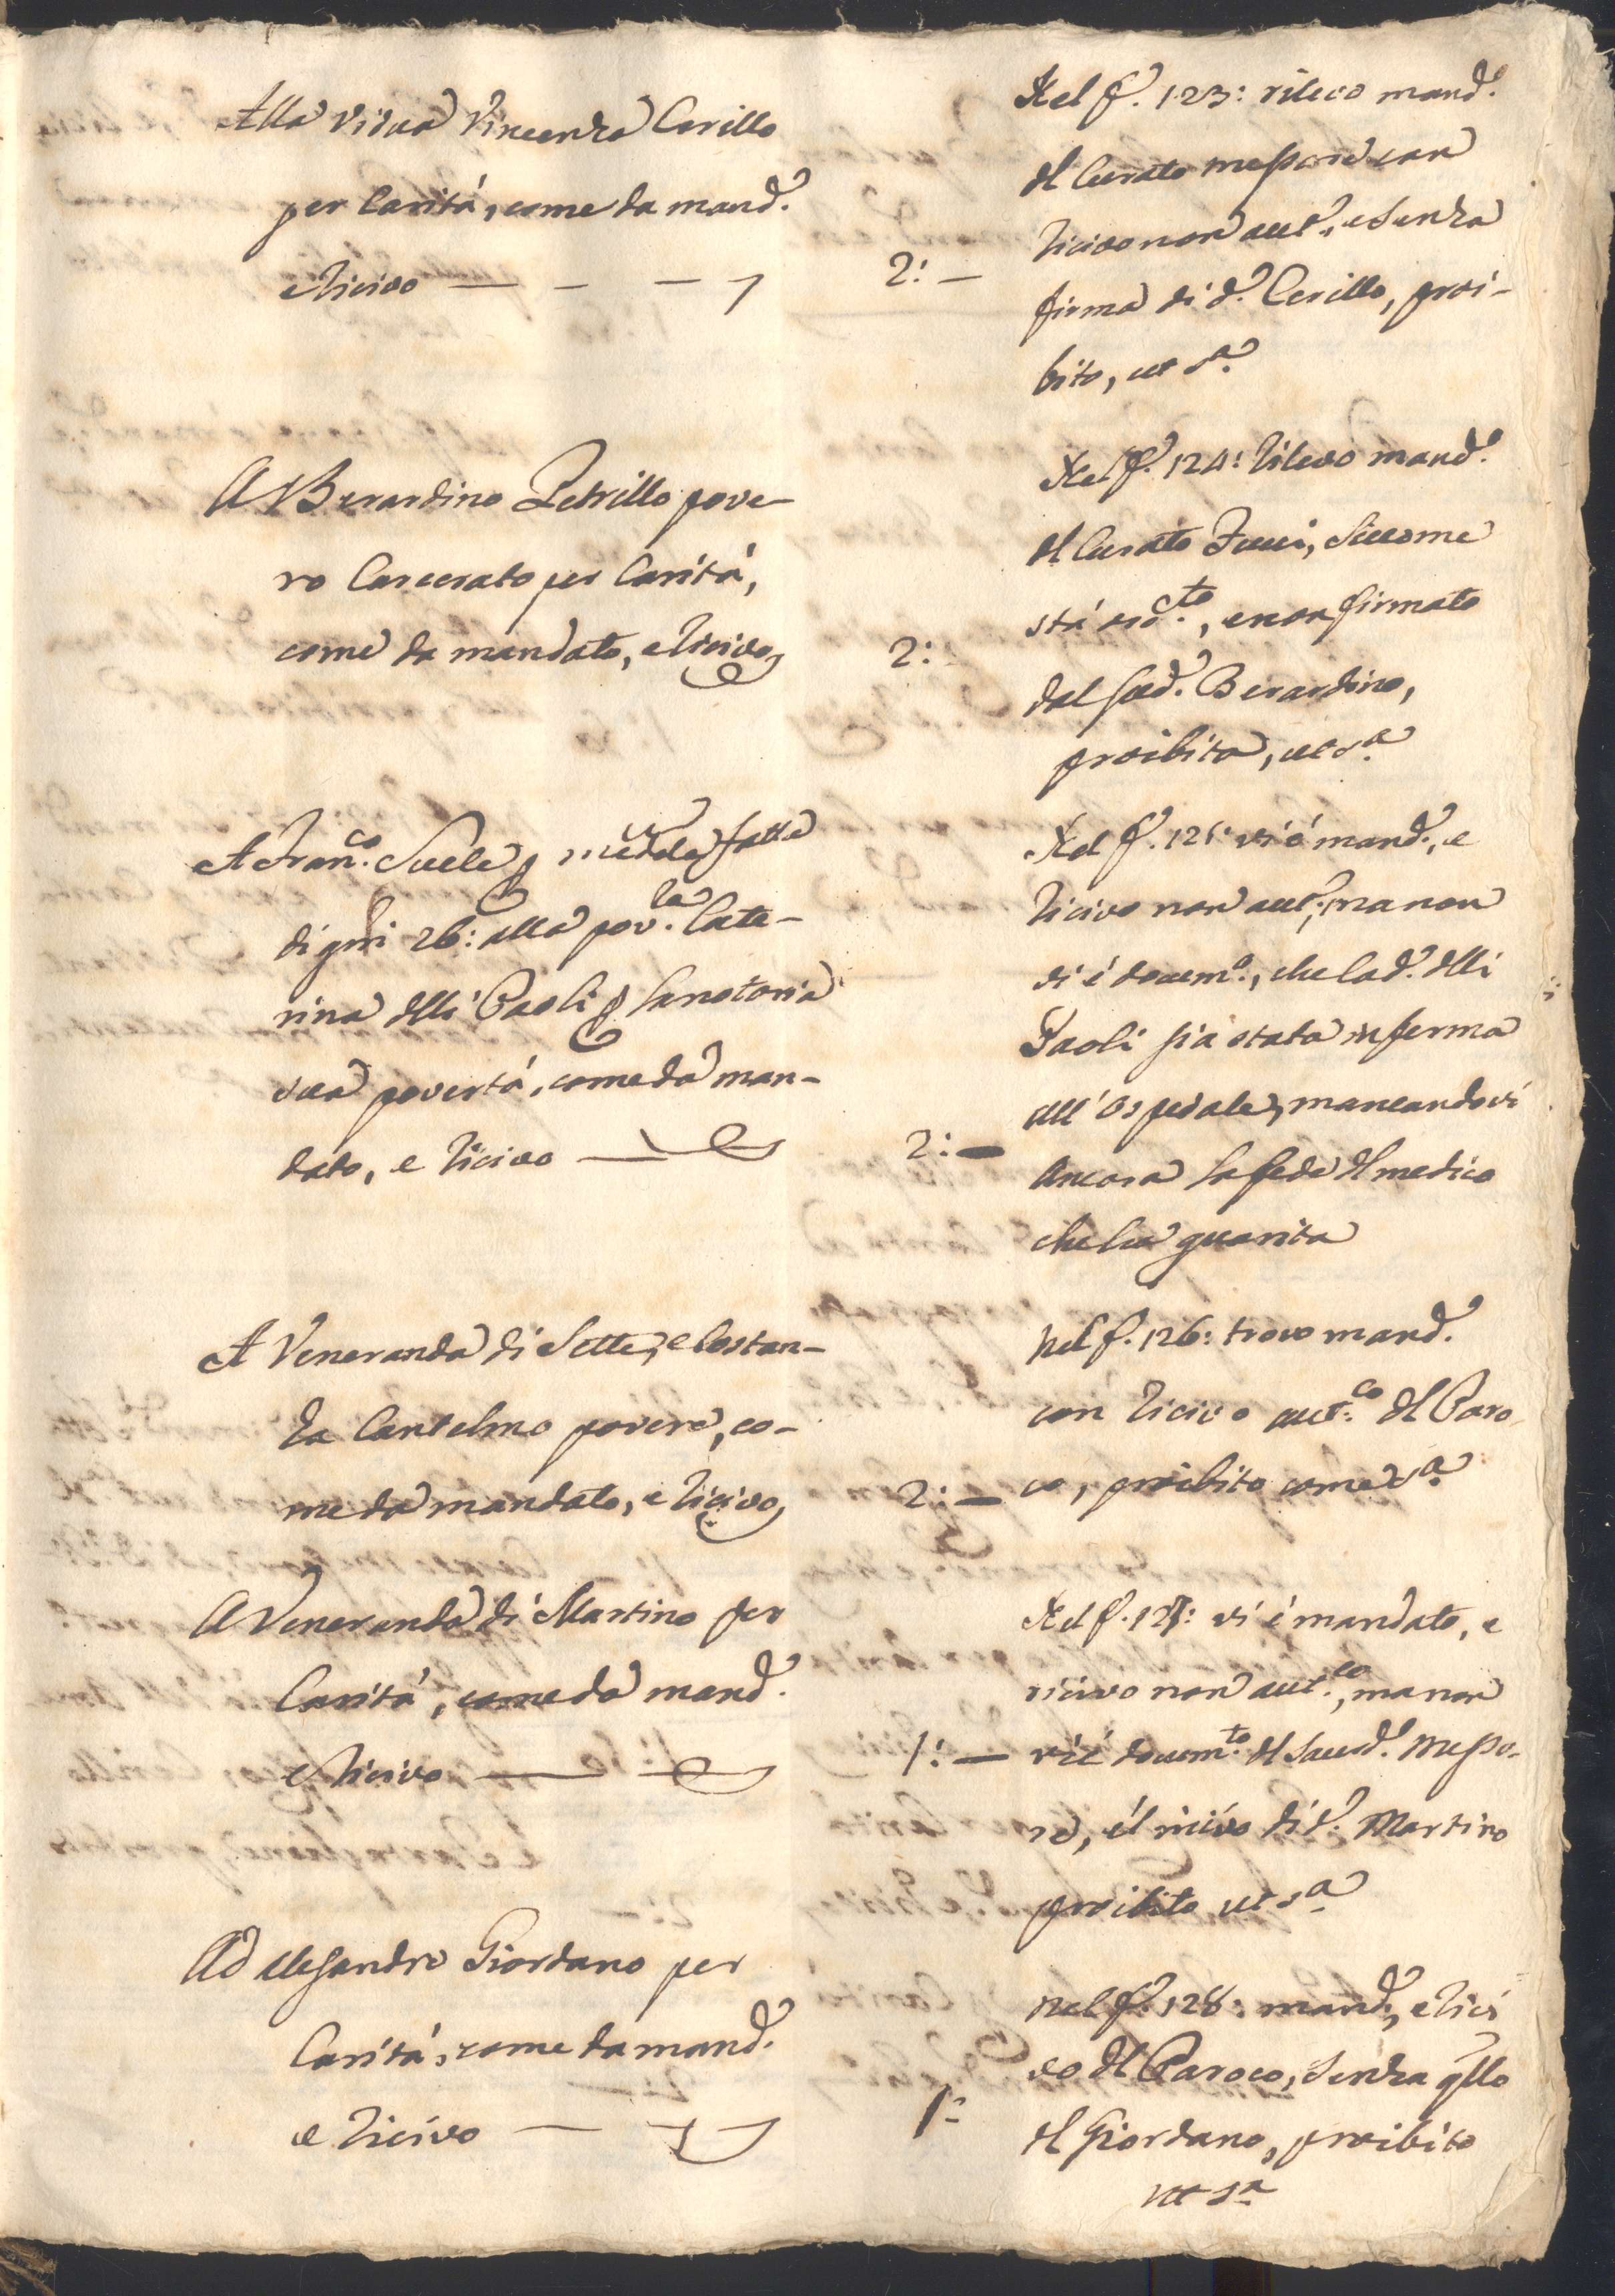 Alla vidua Vincenza Cerillo
per Carità, come da mand.°
e riciv̄o — — — 2: —
Nel f.° 123: rilevo mand.°
del Curato messore con
ricivo non aut.°, e senza
firma di d.° Cerillo, proi-
bito, ut s.a
A Berardino Petrillo pove-
ro Carcerato per Carità,
come da mandato, e ricivo 2:
Nel f.° 124: rilevo mand.°
del Curato Fucci, siccome
stà ord.to, e non firmato
dal sud.° Berardino,
proibita, ut s.a
A Fran.co Suele p
di gni 26: alla pov.la Cate-
rina delli Paoli p la notoria
sua povertà, come da man-
dato, e ricivo 2: —
Nel f.° 125: vi è mand.°, e
ricivo non aut.°, ma non
vi è docum.o, che la d.° delli
Paoli sia stata inferma
all'ospedale, mancandovi
ancora la fede del medico
che l'ha guarita
A Veneranda di Sette, e Costan-
za Cantelmo povere, co-
me da mandato, e ricivo 2: —
Nel f. 126: trovo mand.°
con ricivo aut.co del Paro
co, proibito come s.a
A Veneranda di Martino per
Carità, come da mand.°
e ricivo — — 1: —
Nel f. 127: vi è mandato, e
ricivo non aut.co, ma non
vi è docum.to del sacerd.° messo-
re, è l ricivo di d.° Martino
proibito ut s.a
Ad Alesandro Giordano per
Carità, come da mand.°
e ricivo — — 1:
Nel f.° 128: mand.°, e rici
vo del Paroco, senza qllo
del Giordano, proibito
ut s.a